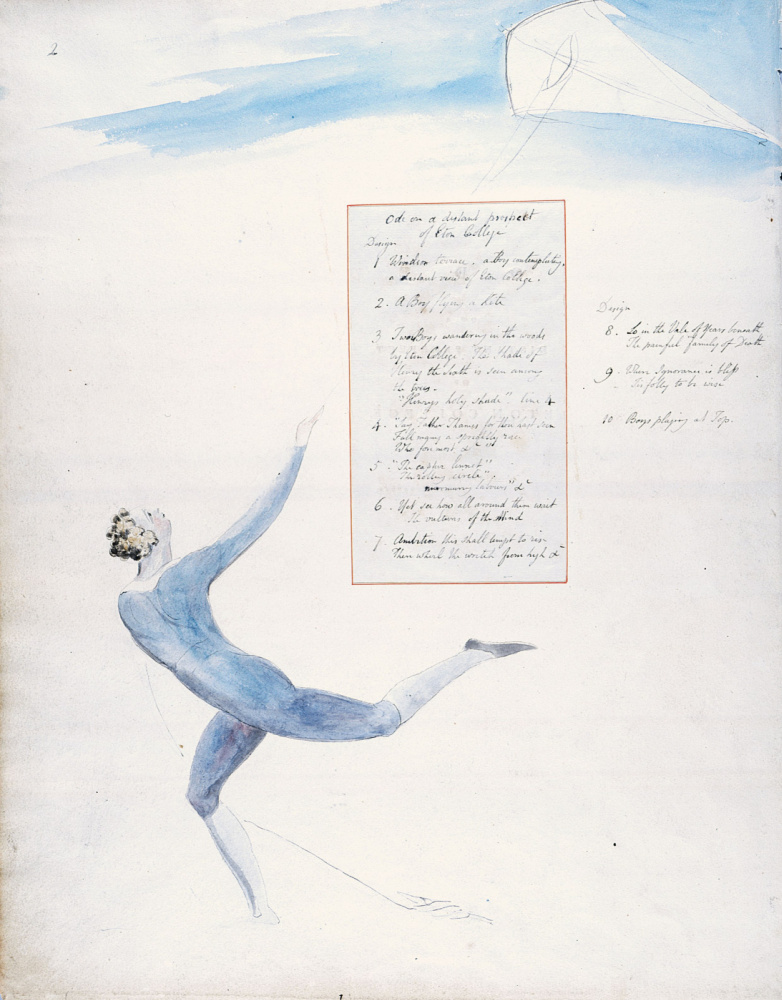 2
Ode on a distant prospect
of Eton College
Design
1 Windsor terrace. a Boy contemplating
a distant view of Eton College.
2. A Boy flying a Kite
3 Two Boys wandering in the woods
by Eton College. The Shade of
Henry the Sixth is seen among
the trees.
"Henrys holy shade" line 4
4. "Say Father Thames for thou hast seen
Full many a sprightly race
Who foremost &c"
5 "The captive linnet"
"The rolling circle"
murmuring labours" &c
6. Yet see how all around them wait
The vultures of the Mind
7. Ambition this shall tempt to rise
Then whirl the wretch from high &c
Design
8. Lo in the Vale of Years beneath
The painful family of Death
9. Where Ignorance is bliss
Tis folly to be wise
10 Boys playing at Top.